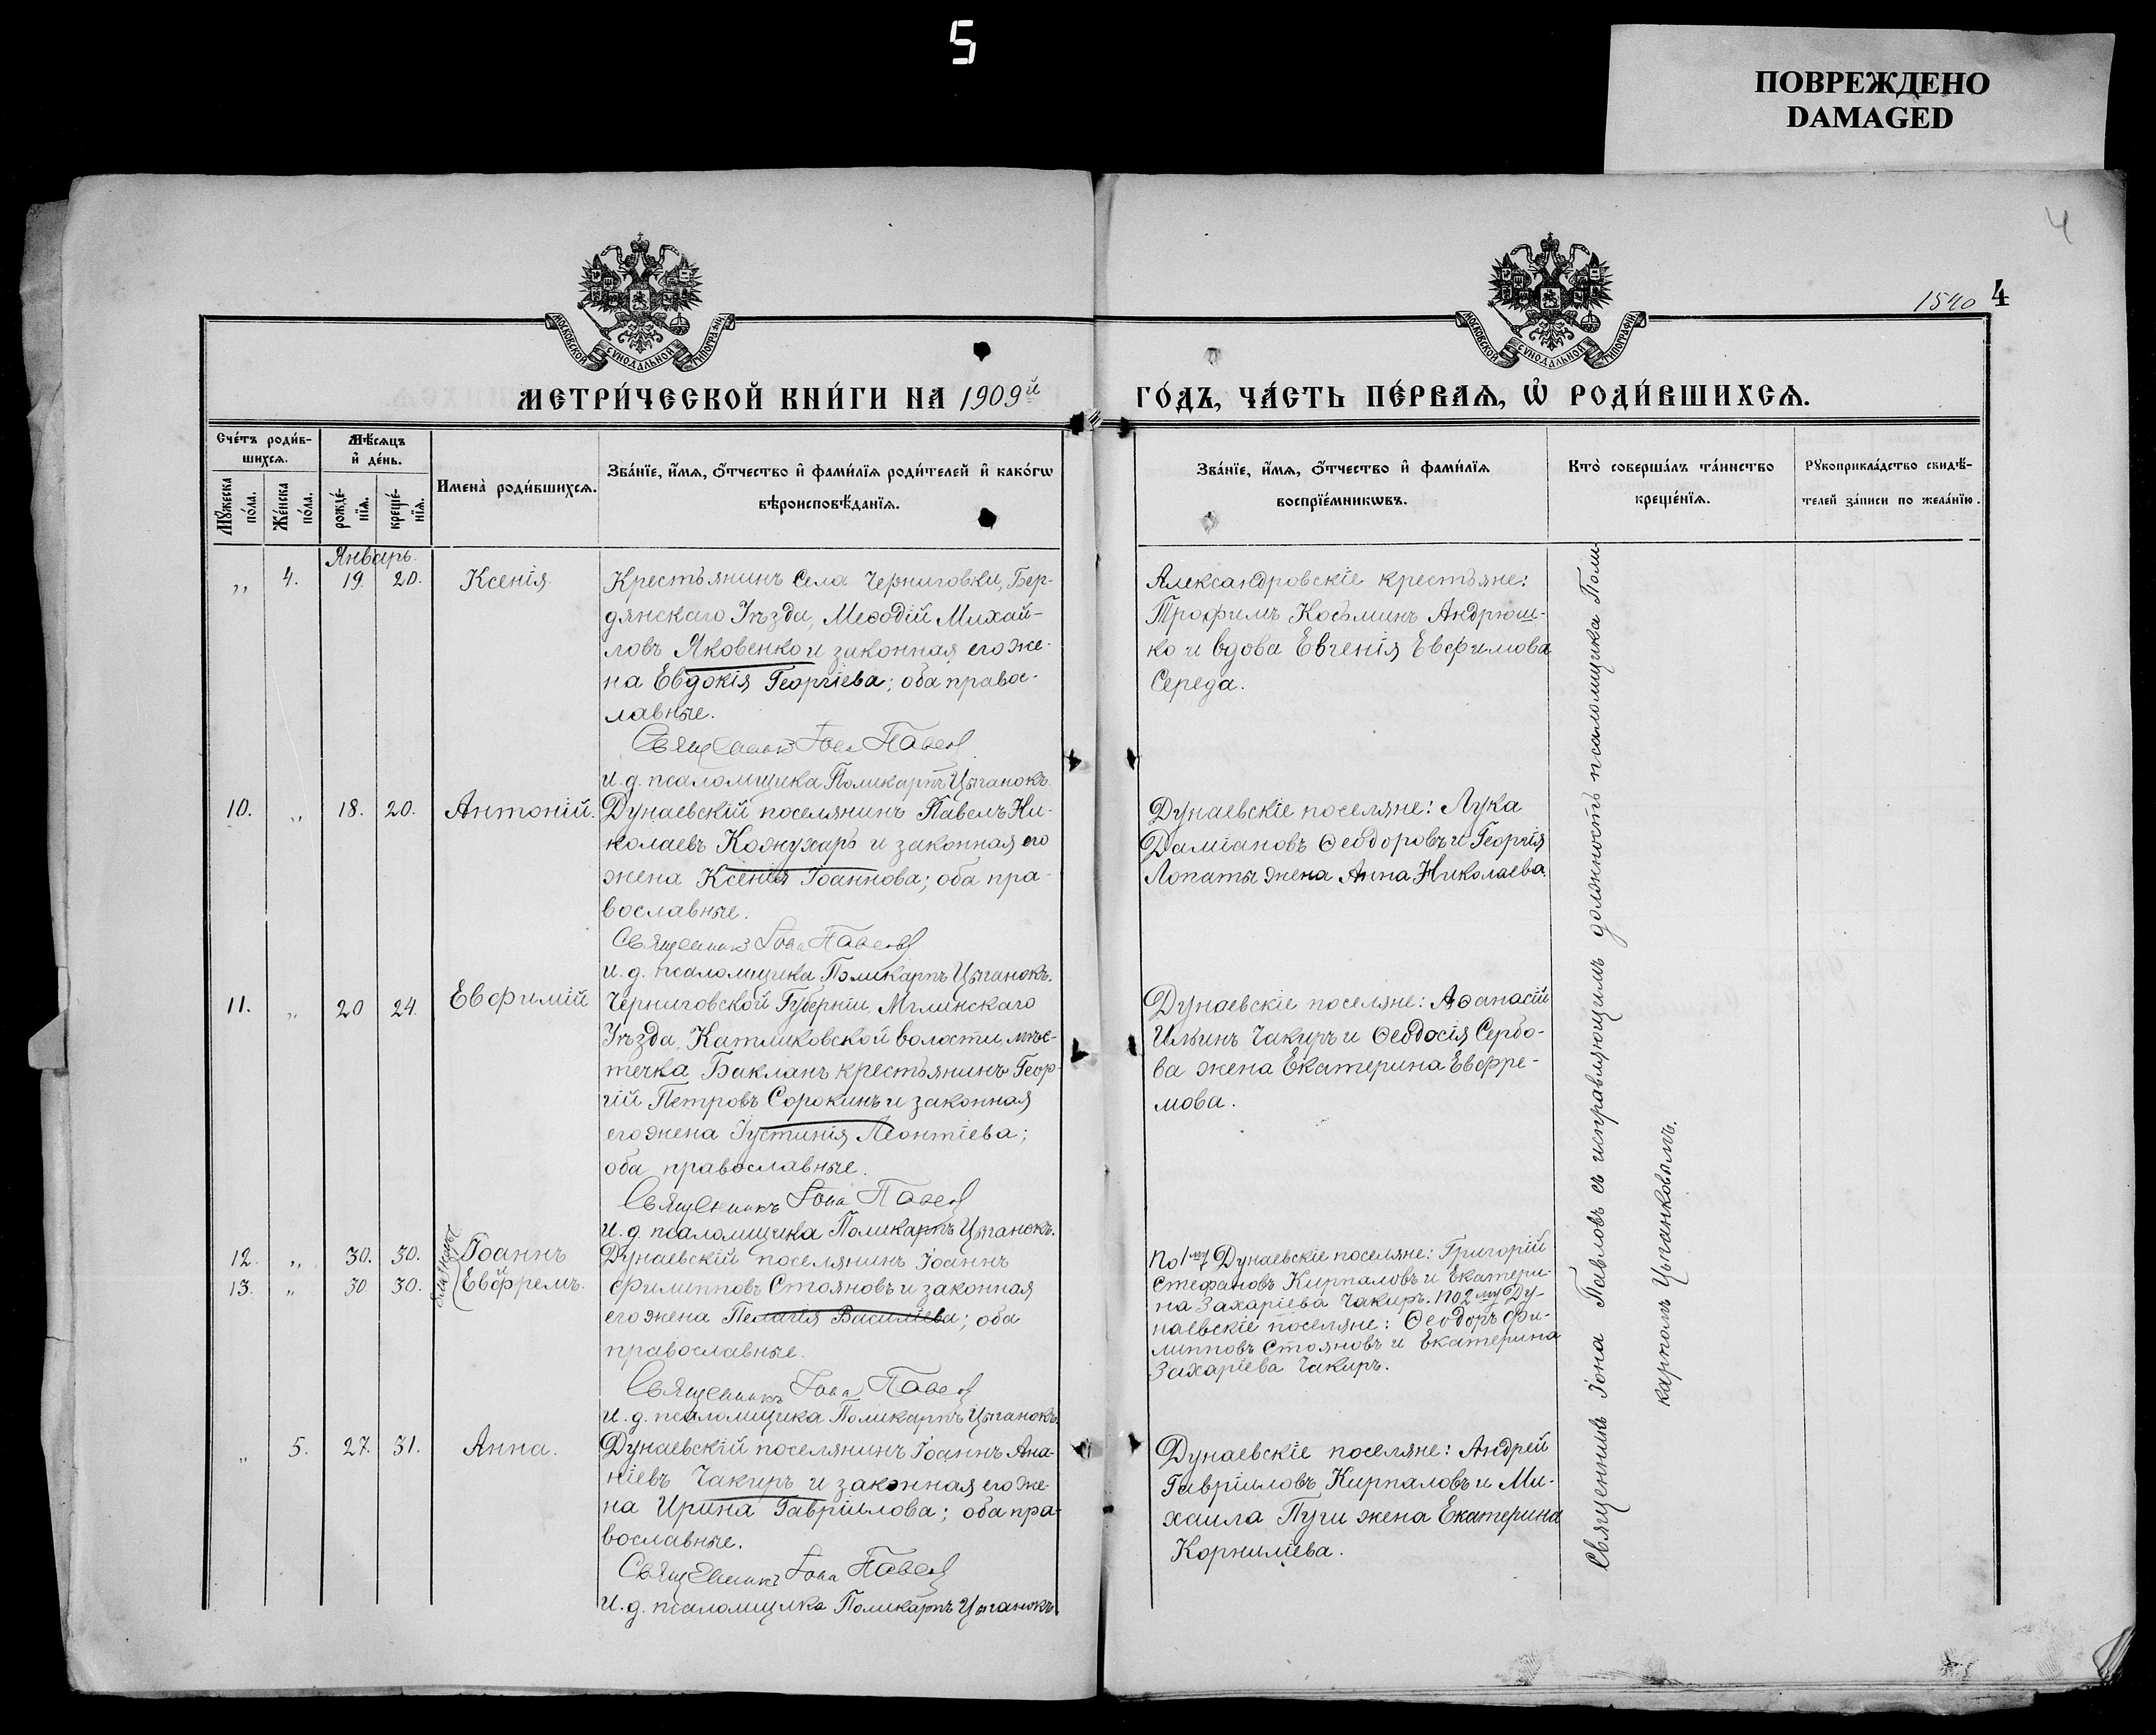 5
ПОВРЕЖДЕНО
DAMAGED
4
1540
4
МОСКОВСКОЙ СѴНОДАЛЬНОЙ ТИПОГРАФИИ
МОСКОВСКОЙ СѴНОДАЛЬНОЙ ТИПОГРАФИИ
МЕТРИ́ЧЕСКОЙ КНИ́ГИ НА 1909й
ГО́ДЪ, ЧА́СТЬ ПЕ́РВАѦ, Ѡ҆ РОДИ́ВШИХСѦ.
Сче́тъ роди́в-
шихсѧ.
Мѣ́сѧцъ
и҆ де́нь.
Мꙋ́жеска по́ла.
Же́нска по́ла.
рожде́-
нїѧ.
креще́-
нїѧ.
Имена̀ роди́вшихсѧ.
Зва́нїе, и҆́мѧ, ѻ҆́тчество и҆ фами́лїѧ роди́телей и҆ како́гѡ
вѣроисповѣ́данїѧ.
Зва́нїе, и҆́мѧ, ѻ҆́тчество и҆ фами́лїѧ
воспрїе́мникѡвъ.
Кто̀ соверша́лъ та́инство
креще́нїѧ.
Рꙋкоприкла́дство свидѣ́-
телей за́писи по жела́нїю.
Январь.
„ 4. 19. 20. Ксенія.
Крестьянинъ села Черниговки, Бер-
дянскаго Уѣзда, Меѳодій Михай-
ловъ Яковенко и законная его же-
на Евдокія Георгіева; оба правос-
лавные.
Священникъ Іона Павлов
и. д. псаломщика Поликарпъ Цыганокъ
Александровскіе крестьяне:
Трофимъ Косьминъ Андрюш-
ко и вдова Евгенія Евфимова
Середа.
10. „ 18. 20. Антоній.
Дунаевскій поселянинъ Павелъ Ни-
колаевъ Кожухарь и законная его
жена Ксенія Іоаннова; оба пра-
вославные.
Священникъ Іона Павлов
и. д. псаломщика Поликарпъ Цыганокъ.
Дунаевскіе поселяне: Лука
Даміановъ Ѳеодоровъ и Георгія
Лопаты жена Анна Николаева.
11. „ 20 24. Евфимій
Черниговской Губерніи, Мглинскаго
Уѣзда, Катиковской волости, мѣс-
течка Бакланъ крестьянинъ Геор-
гій Петровъ Сорокинъ и законная
его жена Іустинія Леонтіева;
оба православные.
Священникъ Іона Павлов
и. д. псаломщика Поликарпъ Цыганокъ.
Дунаевскіе поселяне: Аѳанасій
Ильинъ Чакиръ и Ѳеодосія Сербо-
ва жена Екатерина Евфре-
мова.
12. „ 30. 30. Іоаннъ
13. „ 30 30. Евфремъ.
близнецы
Дунаевскій поселянинъ Іоаннъ
Филипповъ Стояновъ и законная
его жена Пелагія Василіева; оба
православные.
Священникъ Іона Павлов
и. д. псаломщика Поликарпъ Цыганокъ.
По 1му Дунаевскіе поселяне: Григорій
Стефановъ Кирпаловъ и Екатери-
на Захаріева Чакиръ. По 2му Ду-
наевскіе поселяне: Ѳеодоръ Фи-
липповъ Стояновъ и Екатерина
Захаріева Чакиръ.
„ 5. 27. 31. Анна.
Дунаевскій поселянинъ Іоаннъ Ана-
ніевъ Чакиръ и законная его же-
на Ирина Гавріилова; оба пра-
вославные.
Священникъ Іона Павлов
и. д. псаломщика Поликарпъ Цыганокъ
Дунаевскіе поселяне: Андрей
Гавріиловъ Кирпаловъ и Ми-
хаила Пуги жена Екатерина
Корниліева.
Священникъ Іона Павловъ съ исправляющимъ должность псаломщика Поли-
карпомъ Цыганковымъ.